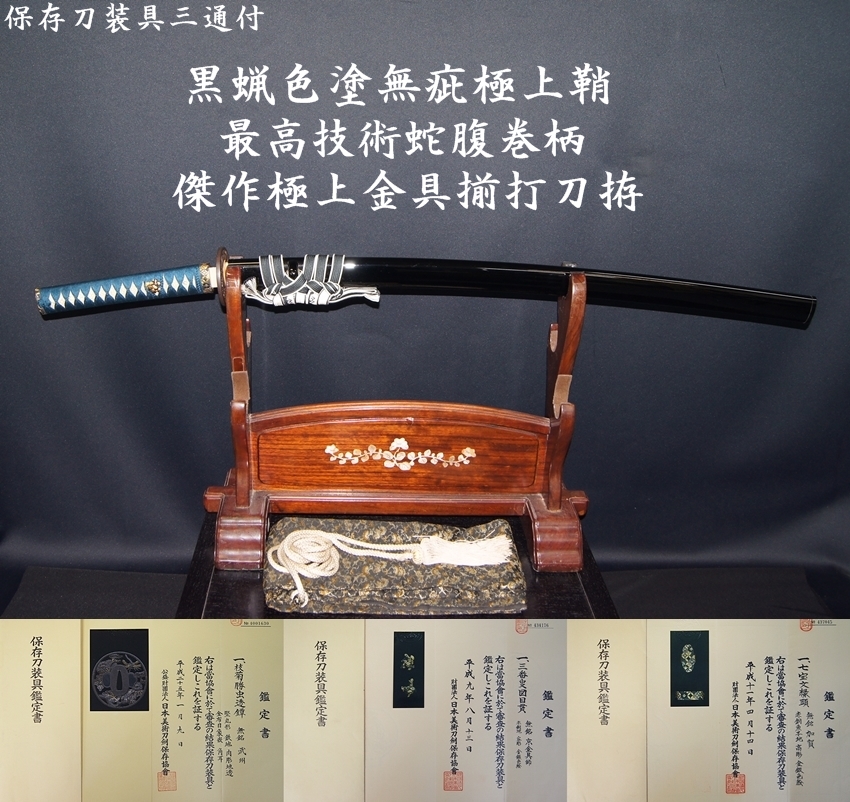 保存刀装具三通付
黒蝋色塗無疵極上鞘
最高技術蛇腹巻柄
傑作極上金具揃打刀拵
保存刀装具鑑定書
鑑定書
一、枝菊勝虫透鐔 無銘 武州
竪丸形 鉄地 肉彫地透
右は當協會に於て審査の結果保存刀装具と
鑑定しこれを証する
平成二十五年一月九日
公益財団法人日本美術刀剣保存協會
保存刀装具鑑定書
鑑定書
一、三番叟図目貫 無銘 京金具師
右は當協會に於て審査の結果保存刀装具と
鑑定しこれを証する
平成九年八月十三日
財團法人日本美術刀剣保存協會
保存刀装具鑑定書
鑑定書
無銘 加賀
右は當協會に於て審査の結果保存刀装具と
鑑定しこれを証する
平成十一年四月十四日
財團法人日本美術刀剣保存協會